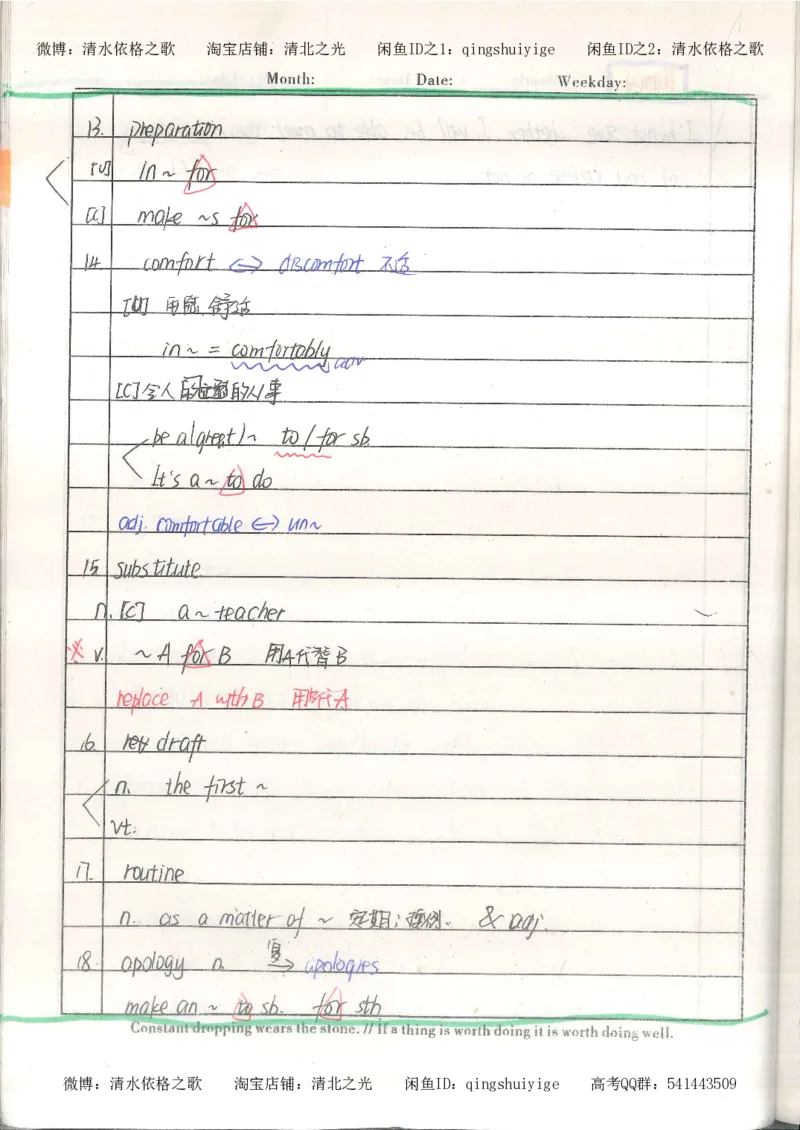 微博：清水依格之歌 淘宝店铺：清北之光 闲鱼ID之1：qingshuiyige 闲鱼ID之2：清水依格之歌
Month: Date: Weekday:
13. preparation
[U] in ~ for
[C] make ~s for
14. comfort ⇔ discomfort 不适
[U] 舒适
in ~ = comfortably adv
[C] 令人的人/事
be a(great) ~ to / for sb.
It's a ~ to do
adj. comfortable ⇔ un~
15 substitute
n. [C] a ~ teacher
※ v. ~ A for B 用A代替B
replace A with B 用B代A
16. draft
n. the first ~
vt.
17. routine
n. as a matter of ~ 定期; 惯例. & adj.
18. apology n. 复 → apologies
make an ~ to sb. for sth
Constant dropping wears the stone. // If a thing is worth doing it is worth doing well.
微博：清水依格之歌 淘宝店铺：清北之光 闲鱼ID：qingshuiyige 高考QQ群：541443509